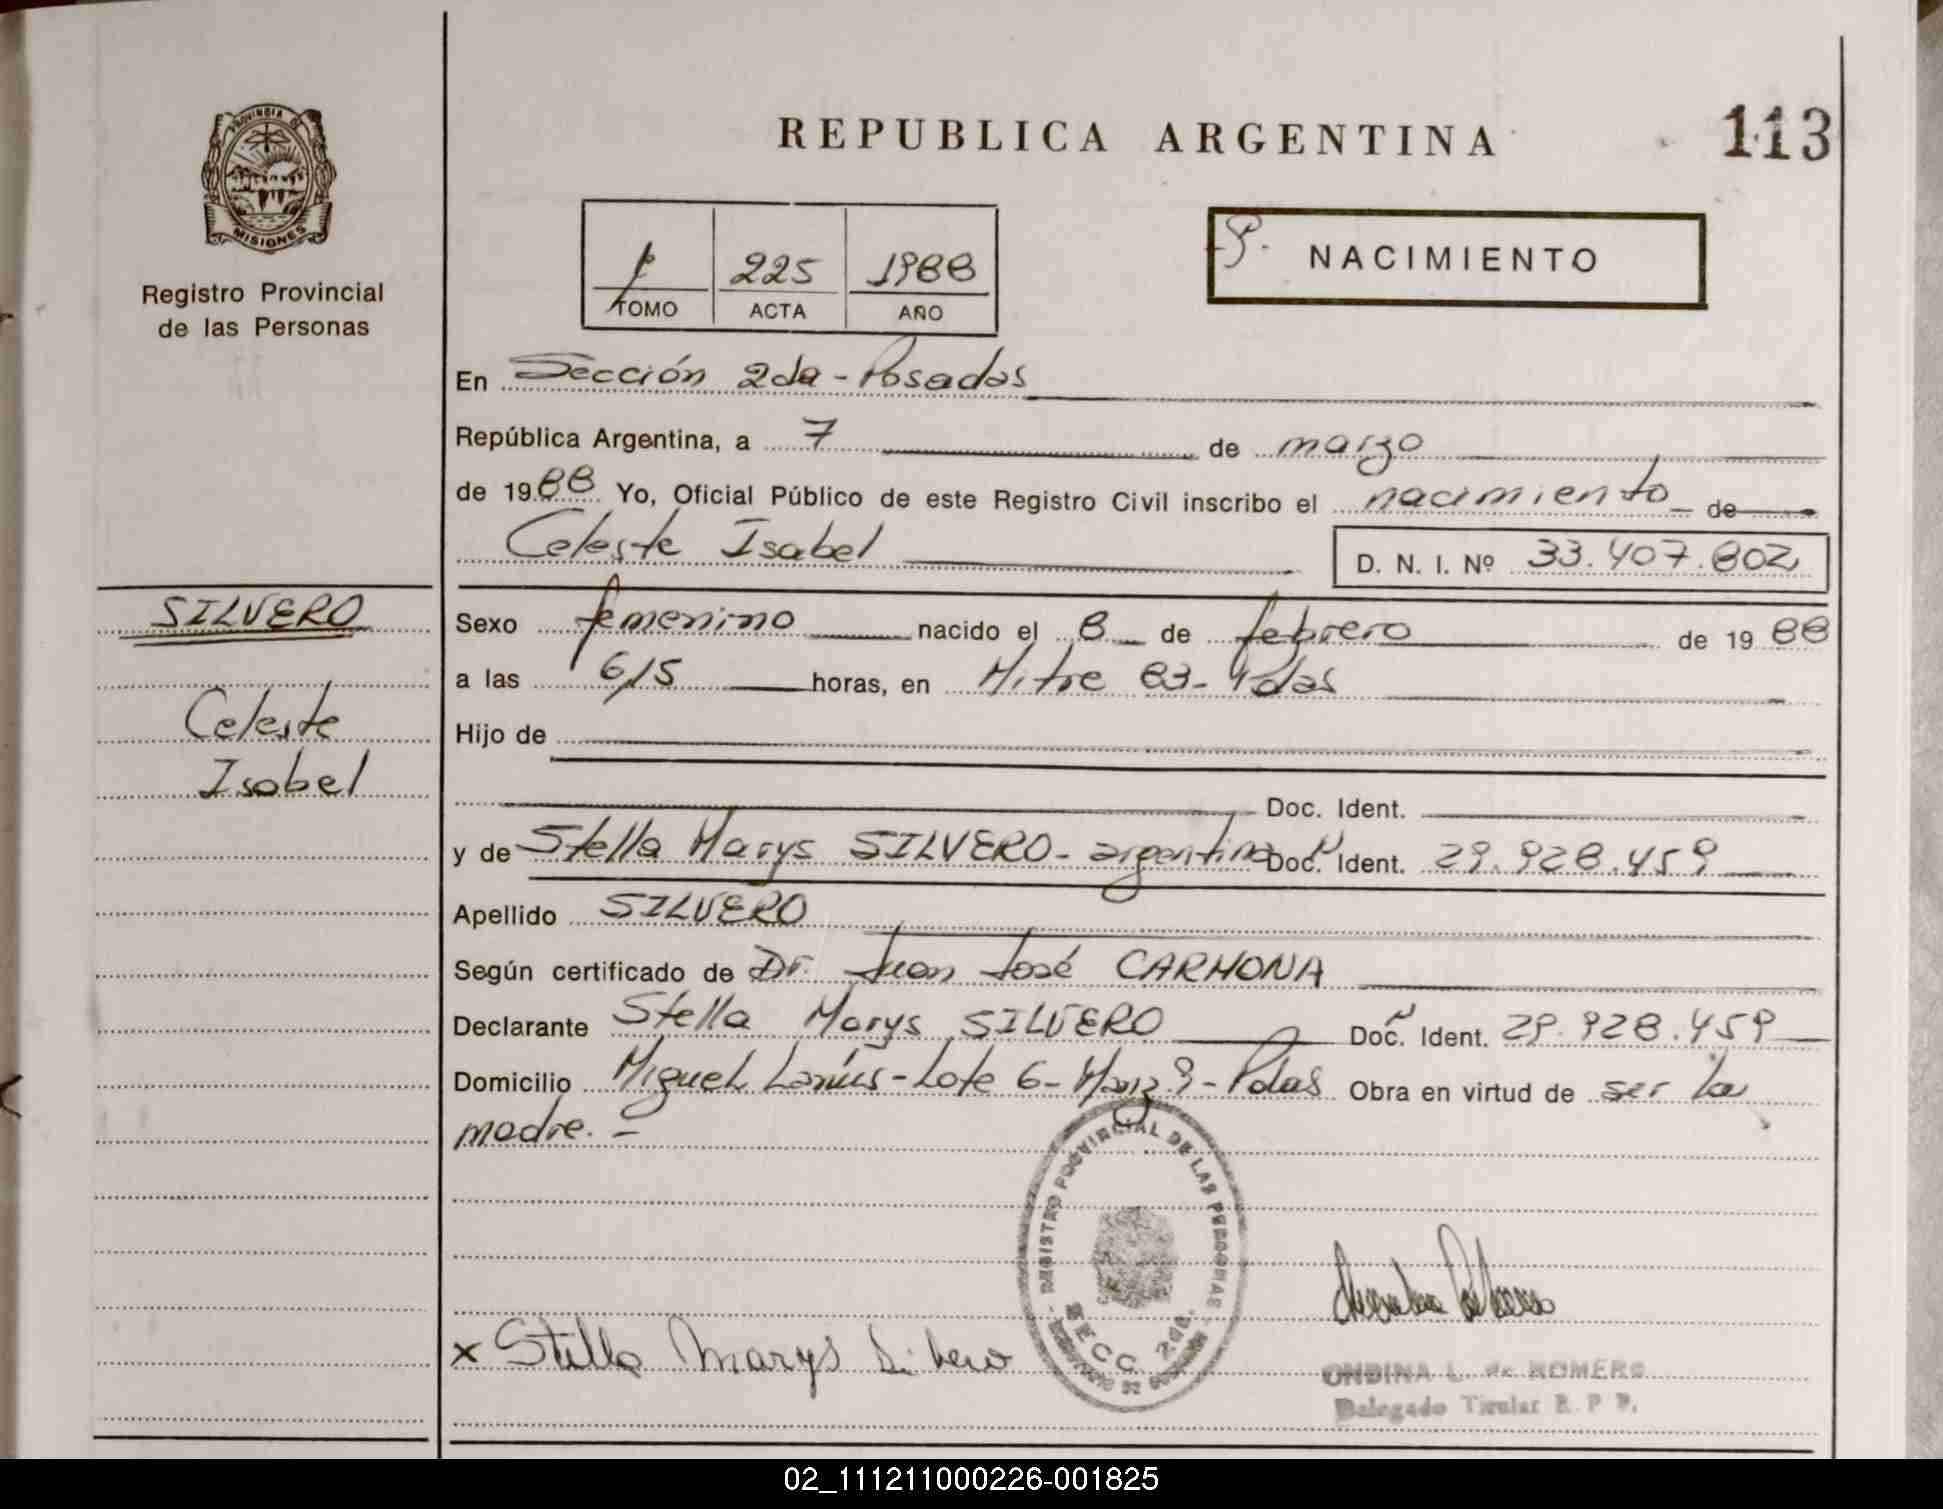 PROVINCIA DE
MISIONES
Registro Provincial
de las Personas
REPUBLICA ARGENTINA
113
225 1988
TOMO ACTA AÑO
NACIMIENTO
En Sección 2da - Posadas
República Argentina, a 7 de marzo
de 1988 Yo, Oficial Público de este Registro Civil inscribo el nacimiento de
Celeste Isabel D. N. I. Nº 33.407.802
SILVERO
Celeste
Isabel
Sexo femenino nacido el 8 de febrero de 1988
a las 6/5 horas, en Mitre 83 - Pdas
Hijo de
Doc. Ident.
y de Stella Marys SILVERO - argentina Doc. Ident. 29.928.459
Apellido SILVERO
Según certificado de Dr. Juan José CARMONA
Declarante Stella Marys SILVERO Doc. Ident. 29.928.459
Domicilio Miguel Lanús - Lote 6 - Manz 9 - Pdas Obra en virtud de ser la
madre. -
REGISTRO PROVINCIAL DE LAS PERSONAS
SECC. 2da.
x Stella Marys Silvero
ONDINA L. de ROMERO
Delegado Titular R. P. P.
02_111211000226-001825